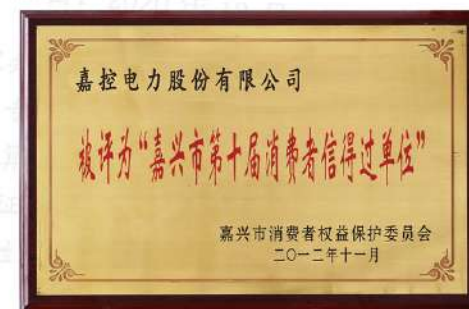 嘉控电力股份有限公司
被评为“嘉兴市第十届消费者信得过单位”
嘉兴市消费者权益保护委员会
二〇一二年十一月